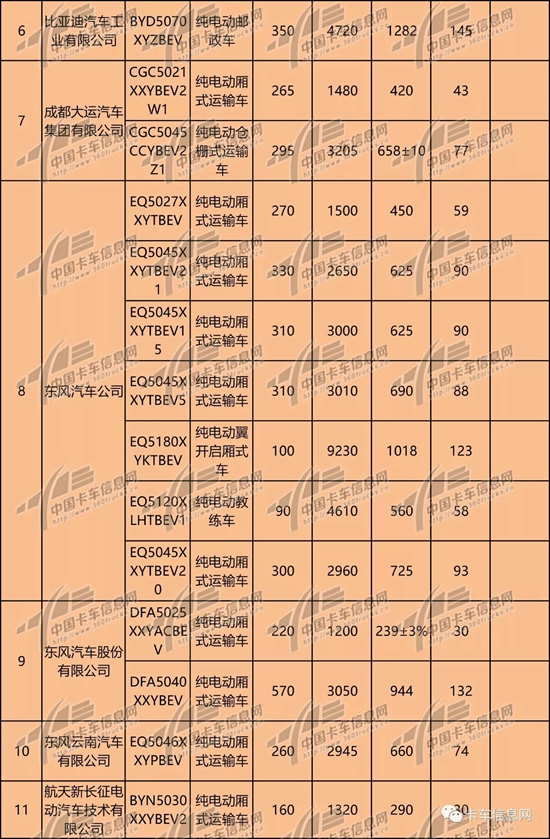 6
比亚迪汽车工
业有限公司
BYD5070
XYZBEV
纯电动邮
政车
350
4720
1282
145
7
成都大运汽车
集团有限公司
CGC5021
XXYBEV2
W1
纯电动厢
式运输车
265
1480
420
43
CGC5045
CCYBEV2
Z1
纯电动仓
栅式运输
车
295
3205
658±10
77
8
东风汽车公司
EQ5027X
XYTBEV
纯电动厢
式运输车
270
1500
450
59
EQ5045X
XYTBEV2
1
纯电动厢
式运输车
330
2650
625
90
EQ5045X
XYTBEV1
5
纯电动厢
式运输车
310
3000
625
90
EQ5045X
XYTBEV5
纯电动厢
式运输车
310
3010
690
88
EQ5180X
YKTBEV
纯电动翼
开启厢式
车
100
9230
1018
123
EQ5120X
LHTBEV1
纯电动教
练车
90
4610
560
58
EQ5045X
XYTBEV2
0
纯电动厢
式运输车
300
2960
725
93
9
东风汽车股份
有限公司
DFA5025
XXYACBE
V
纯电动厢
式运输车
220
1200
239±3%
30
DFA5040
XXYBEV
纯电动厢
式运输车
570
3050
944
132
10
东风云南汽车
有限公司
EQ5046X
XYPBEV
纯电动厢
式运输车
260
2945
660
74
11
航天新长征电
动汽车技术有
限公司
BYN5030
XXYBEV2
纯电动厢
式运输车
160
1320
290
30
卡车信息网
中国卡车信息网
http://www.360trucks.cn